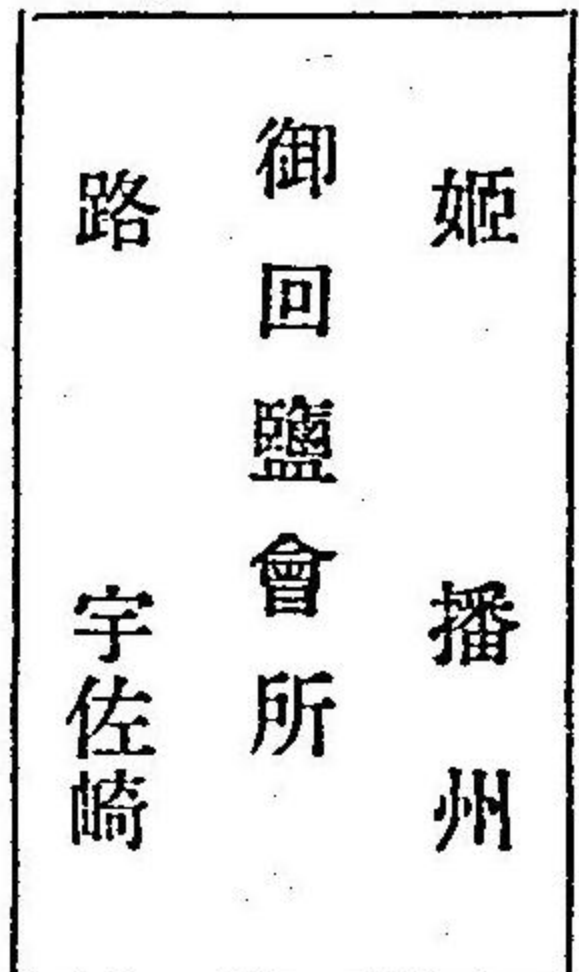 姬　播州
御回鹽會所
路　宇佐崎